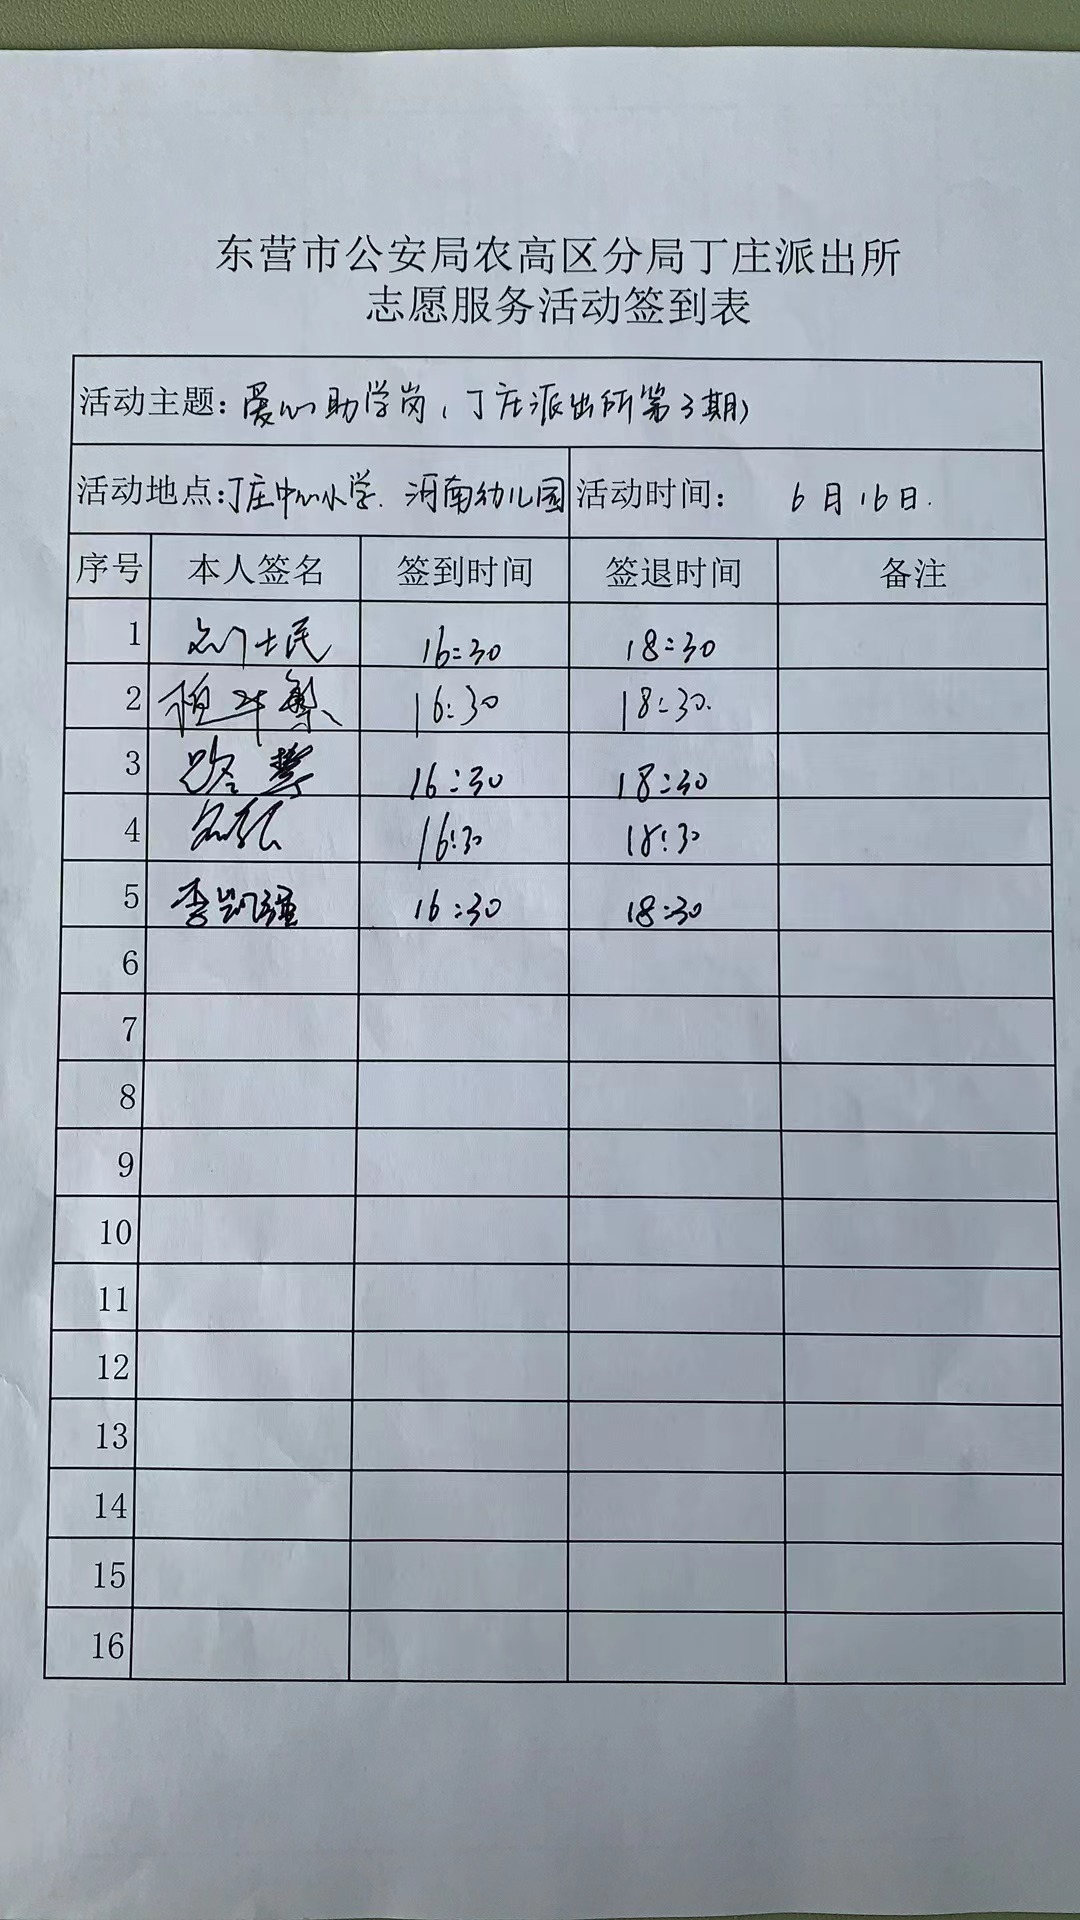 东营市公安局农高区分局丁庄派出所
志愿服务活动签到表
活动主题：爱心助学岗（丁庄派出所第3期）
活动地点：丁庄中心小学、河南幼儿园 活动时间： 6月16日.
序号 本人签名 签到时间 签退时间 备注
1 16:30 18:30
2 16:30 18:30.
3 路 16:30 18:30
4 16:30 18:30
5 李凯强 16:30 18:30
6
7
8
9
10
11
12
13
14
15
16